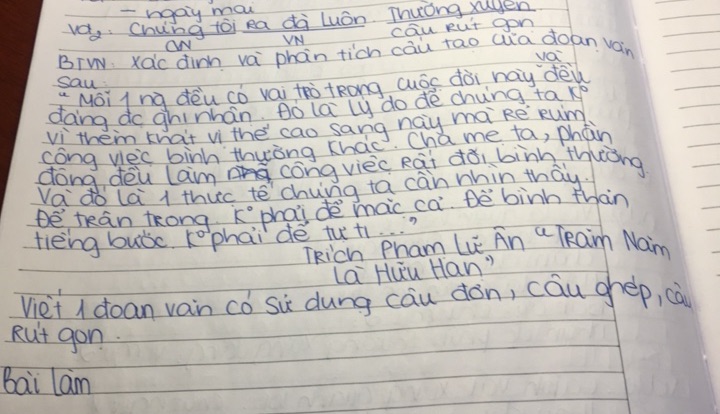 - ngày mai
Vd2. Chúng tôi ra đà luôn. Thường xuyên
CN VN câu rút gọn
BTVN: xác định và phân tích cấu tạo của đoạn văn
sau: và
"Mỗi 1 ng đều có vai trò trong cuộc đời này đều
đáng đc ghi nhận. Đó là lý do để chúng ta k°
vì thèm khát vị thế cao sang này mà rẻ rúm
công việc bình thường khác. Cha mẹ ta, phần
đông, đều làm công việc rất đời bình thường.
Và đó là 1 thực tế chúng ta cần nhìn thấy.
Để trân trọng. K° phải để mặc cả. Để bình thản
tiếng bước. K° phải để tự ti..."
Trích Phạm Lữ Ân "Trăm Năm
Là Hữu Hạn"
Viết 1 đoạn văn có sử dụng câu đơn, câu ghép, câu
rút gọn.
Bài làm